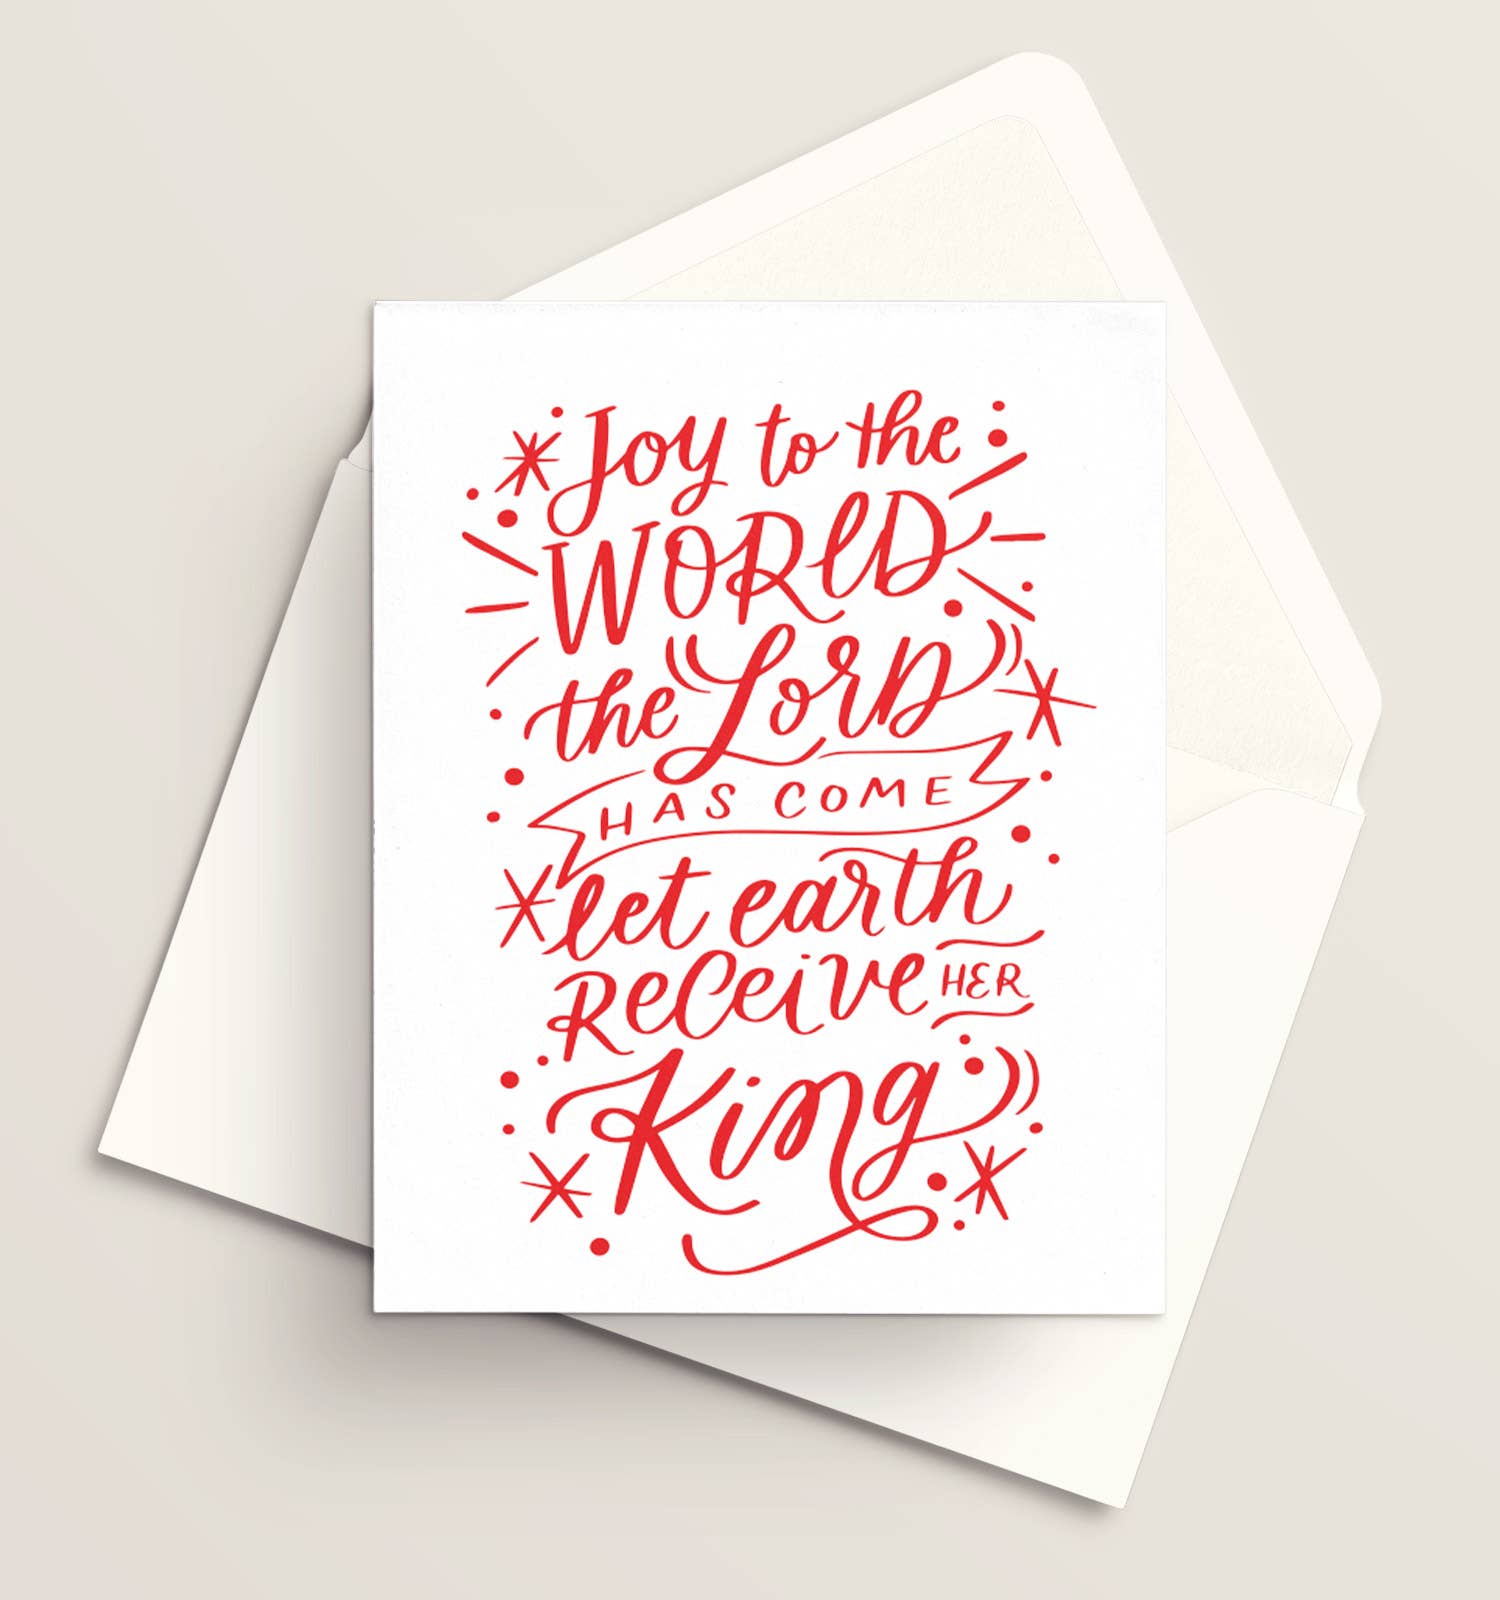 Joy to the
WORLD
the Lord
HAS COME
let earth
Receive HER
King